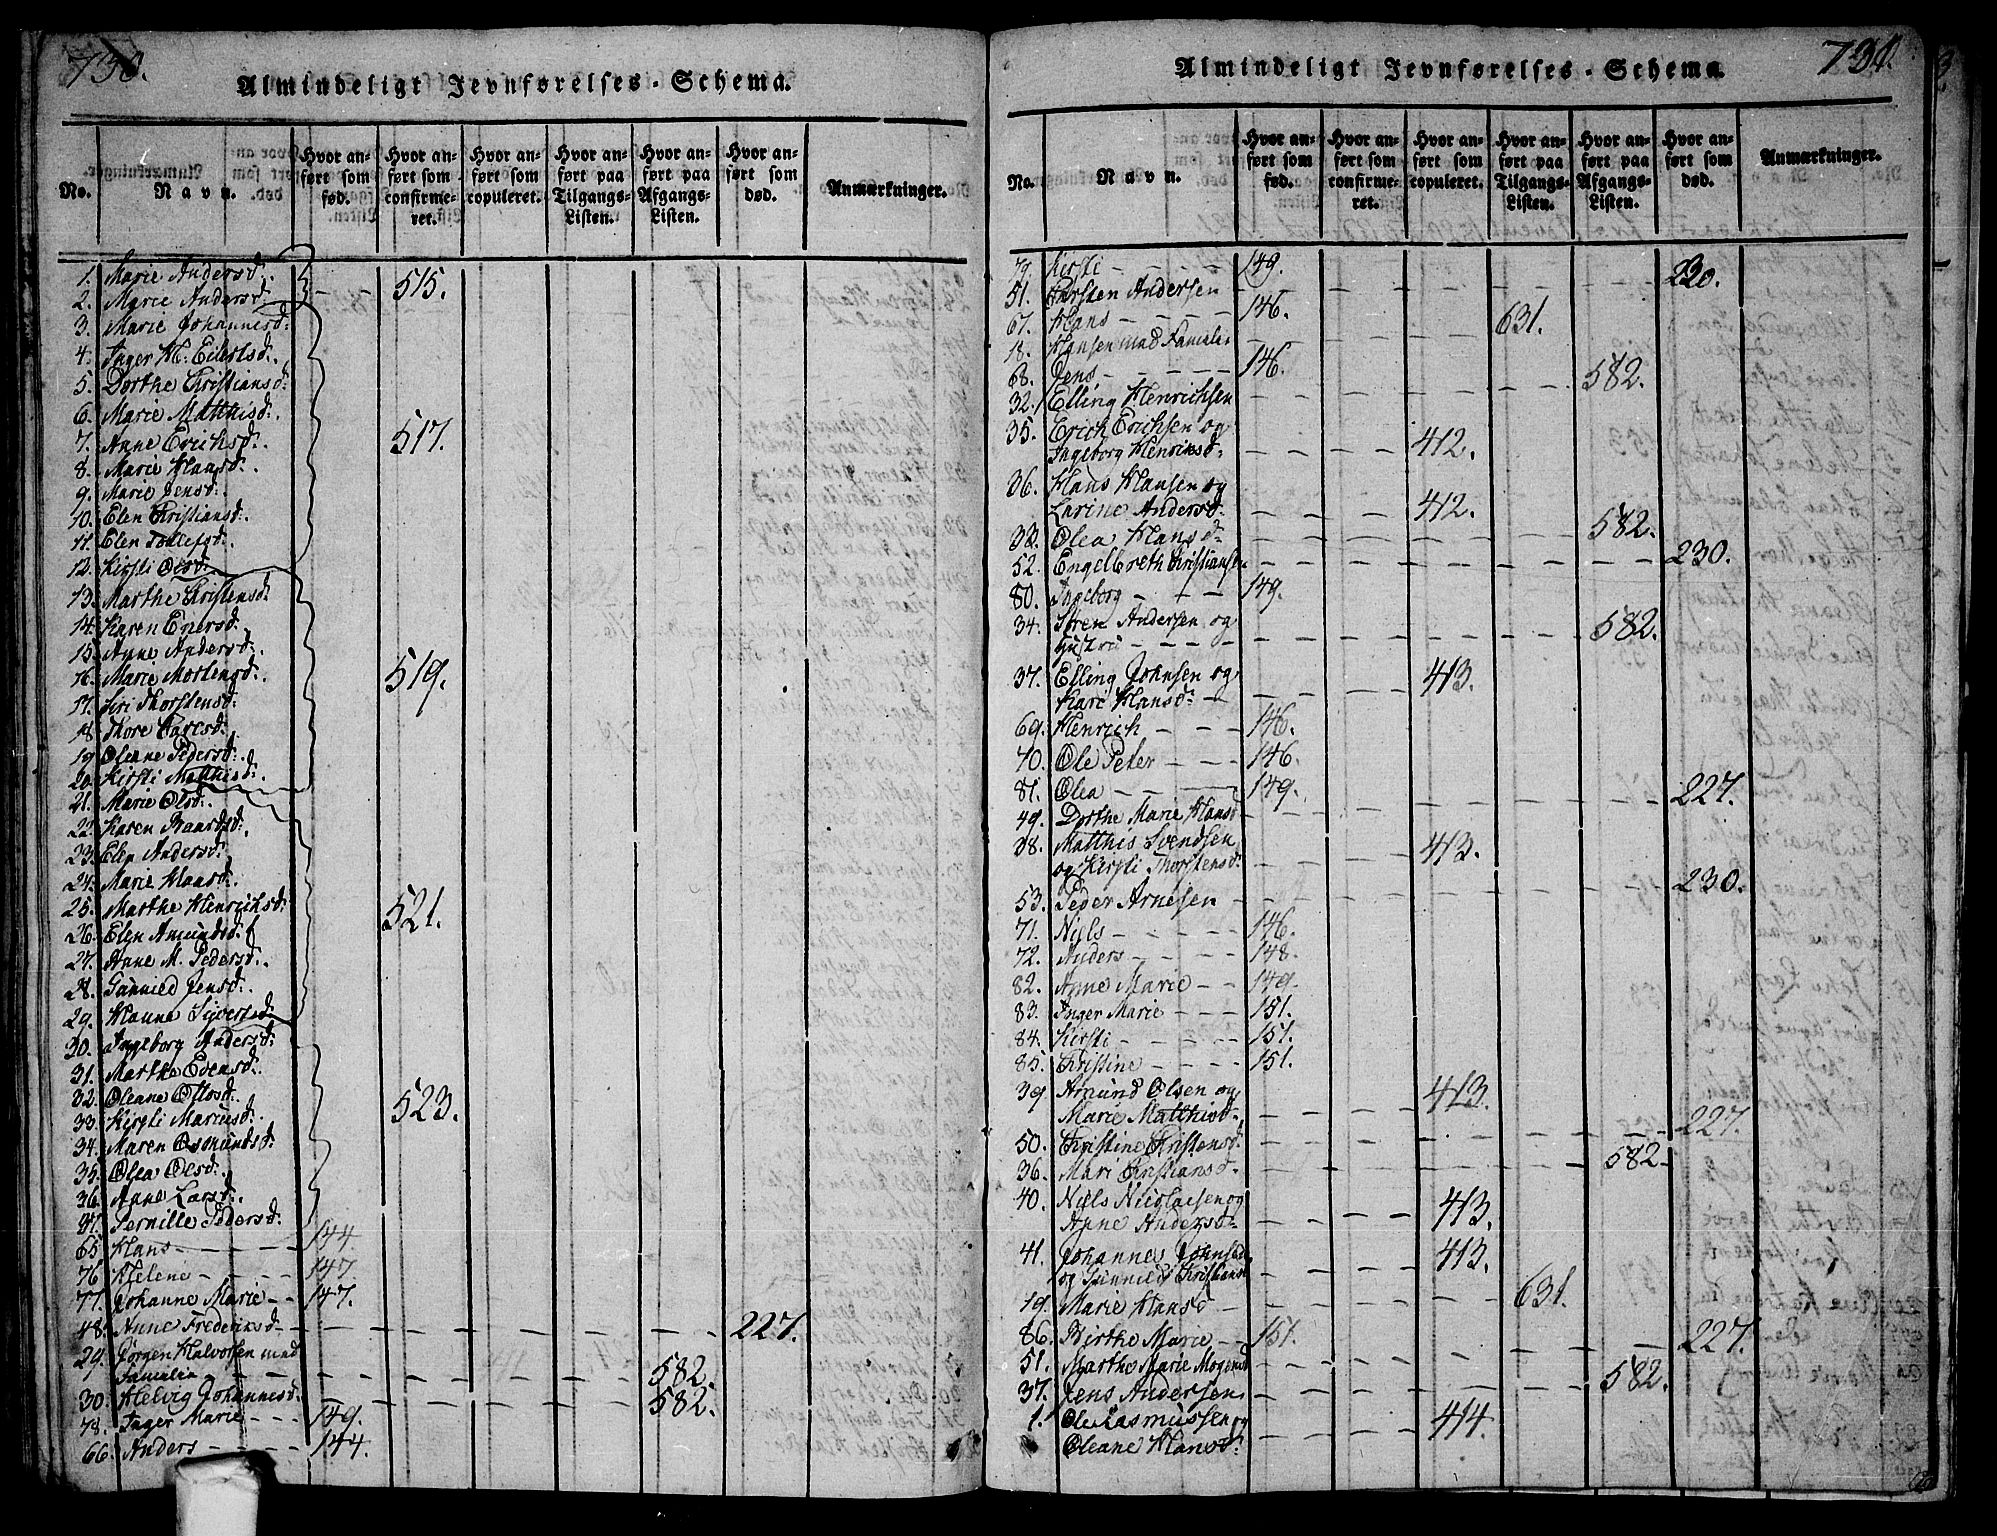 730.
Almindeligt Jevnførelses-Schema.
No.
Navn.
Hvor anført som fød.
Hvor anført som confirmeret.
Hvor anført som copuleret.
Hvor anført paa Tilgangs-Listen.
Hvor anført paa Afgangs-Listen.
Hvor anført som død.
Anmærkninger.
1. Marie Andersd:
2. Marie Andersd: 515.
3. Marie Johannesd:
4. Inger M: Eilertsd:
5. Dorthe Christiansd:
6. Marie Matthisd:
7. Anne Erichsd: 517.
8. Marie Hansd:
9. Marie Jensd:
10. Elen Christiansd:
11. Elen Tollefsd:
12. Kirsti Olsd:
13. Marthe Christensd:
14. Karen Enersd:
15. Anne Andersd:
16. Marie Mortensd: 519.
17. Siri Thorstensd:
18 Thore
19 Oleane Pedersd:
20. Kirsti Matthisd:
21. Marie Olsd:
22. Karen Baardsd:
23. Elen Andersd:
24. Marie Hansd:
25. Marthe Henrichsd: 521.
26. Elen Amundsd:
27. Anne M. Pedersd:
28. Gunnild Jensd:
29. Hanne Sivertsd:
30. Ingeborg Andersd:
31. Marthe Evensd:
32. Oleane
33. Kirsti Mariusd: 523.
34. Maren Osmundsd:
35. Olea Olsd:
36. Anne Larsd:
37. Pernille Pedersd:
65. Hans - - - 144.
76 Helene - - - 147
77. Johanne Marie - - 147.
48. Anne Frederiksd - - - 227.
29. Jørgen Halvorsen med
Familie - - - 582.
30. Helvig Johannesd: - - - 582.
78. Inger Marie - - - 149.
66. Anders - - - 144.
731.
Almindeligt Jevnførelses-Schema.
No.
Navn.
Hvor anført som fød.
Hvor anført som confirmeret.
Hvor anført som copuleret.
Hvor anført paa Tilgangs-Listen.
Hvor anført paa Afgangs-Listen.
Hvor anført som død.
Anmærkninger.
79. Kirsti - - - 149.
51. Karsten Andersen - - - 230.
67. Hans - - - 146.
18. Hansen med Familie - - - 631.
68. Jens - - - 146.
32. Elling Henrichsen - - - 582.
35. Erich Erichsen og
Ingeborg Henriksd: - - - 412.
36. Hans Hansen og
Larine Andersd: - - - 412.
33. Olea Hansd: - - - 582.
52. Engelbreth Christiansen - - - 230.
80. Ingeborg - - - 149.
34. Søren Andersen og
Hustru - - - 582.
37. Elling Johnsen og
Kari Hansd: - - - 413.
69. Henrich - - - 146.
70. Ole Peter - - - 146.
81. Olea - - - 149.
49. Dorthe Marie Hansd - - - 227.
38. Matthis Svendsen
og Kirsti Thorstensd: - - - 413.
53. Peder Arnesen - - - 230.
71. Niels - - - 146.
72. Anders - - - 148.
82. Anne Marie - - 149.
83. Inger Marie - - - 151.
84. Kirsti - - - 151.
85. Christine - - - 151.
39 Amund Olsen og
Marie Matthisd: - - - 413.
50. Christine Christensd: - - - 227.
36. Mari Christiansd: - - - 582
40. Niels Nicolaisen og
Anne Andersd: - - - 413.
41. Johannes Johnsen
og Gunnild Christiansd - - - 413.
19. Marie Hansd - - - 631.
86. Birthe Marie - - 151.
51. Marthe Marie Mogensd - - - 227.
37. Jens Andersen - - - 582.
1. Ole Rasmussen og
Oleane Hansd: - - - 414.